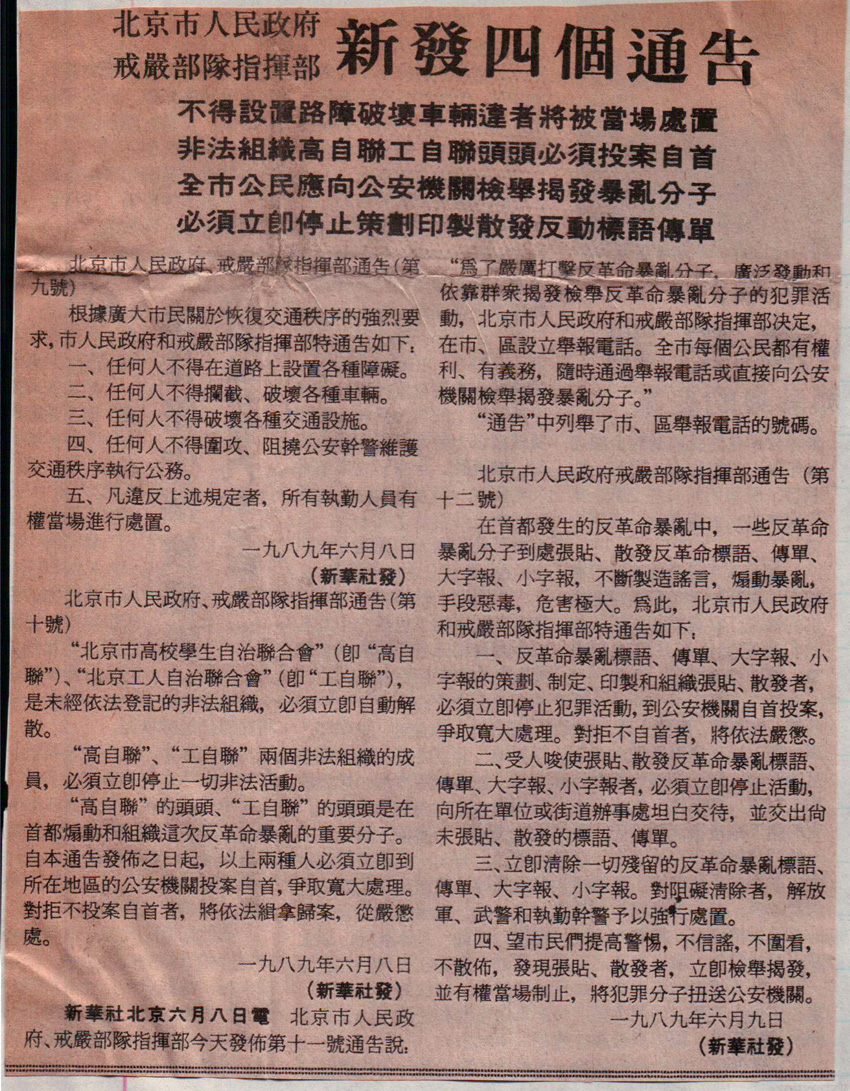 北京市人民政府
戒嚴部隊指揮部
新發四個通告
不得設置路障破壞車輛違者將被當場處置
非法組織高自聯工自聯頭頭必須投案自首
全市公民應向公安機關檢舉揭發暴亂分子
必須立卽停止策劃印製散發反動標語傳單
北京市人民政府、戒嚴部隊指揮部通告(第
九號)
根據廣大市民關於恢復交通秩序的強烈要
求,市人民政府和戒嚴部隊指揮部特通告如下:
一、任何人不得在道路上設置各種障礙。
二、任何人不得攔截、破壞各種車輛。
三、任何人不得破壞各種交通設施。
四、任何人不得圍攻、阻撓公安幹警維護
交通秩序執行公務。
五、凡違反上述規定者，所有執勤人員有
權當場進行處置。
一九八九年六月八日
（新華社發）
北京市人民政府、戒嚴部隊指揮部通告(第
十號)
“北京市高校學生自治聯合會”(卽“高自
聯”)、“北京工人自治聯合會”(卽“工自聯”)，
是未經依法登記的非法組織，必須立卽自動解
散。
“高自聯”、“工自聯”兩個非法組織的成
員，必須立卽停止一切非法活動。
“高自聯”的頭頭、“工自聯”的頭頭是在
首都煽動和組織這次反革命暴亂的重要分子。
自本通告發佈之日起，以上兩種人必須立卽到
所在地區的公安機關投案自首,爭取寬大處理。
對拒不投案自首者，將依法緝拿歸案，從嚴懲
處。
一九八九年六月八日
（新華社發）
新華社北京六月八日電　北京市人民政
府、戒嚴部隊指揮部今天發佈第十一號通告說:
“爲了嚴厲打擊反革命暴亂分子，廣泛發動和
依靠群衆揭發檢舉反革命暴亂分子的犯罪活
動，北京市人民政府和戒嚴部隊指揮部决定，
在市、區設立舉報電話。全市每個公民都有權
利、有義務，隨時通過舉報電話或直接向公安
機關檢舉揭發暴亂分子。”
“通告”中列舉了市、區舉報電話的號碼。
北京市人民政府戒嚴部隊指揮部通告（第
十二號）
在首都發生的反革命暴亂中，一些反革命
暴亂分子到處張貼、散發反革命標語、傳單、
大字報、小字報，不斷製造謠言，煽動暴亂，
手段惡毒，危害極大。爲此，北京市人民政府
和戒嚴部隊指揮部特通告如下:
一、反革命暴亂標語、傳單、大字報、小
字報的策劃、制定、印製和組織張貼、散發者，
必須立卽停止犯罪活動,到公安機關自首投案，
爭取寬大處理。對拒不自首者，將依法嚴懲。
二、受人唆使張貼、散發反革命暴亂標語、
傳單、大字報、小字報者，必須立卽停止活動，
向所在單位或街道辦事處坦白交待，並交出尙
未張貼、散發的標語、傳單。
三、立卽清除一切殘留的反革命暴亂標語、
傳單、大字報、小字報。對阻礙清除者，解放
軍、武警和執勤幹警予以強行處置。
四、望市民們提高警惕，不信謠，不圍看，
不散佈，發現張貼、散發者，立卽檢舉揭發，
並有權當場制止，將犯罪分子扭送公安機關。
一九八九年六月九日
（新華社發）